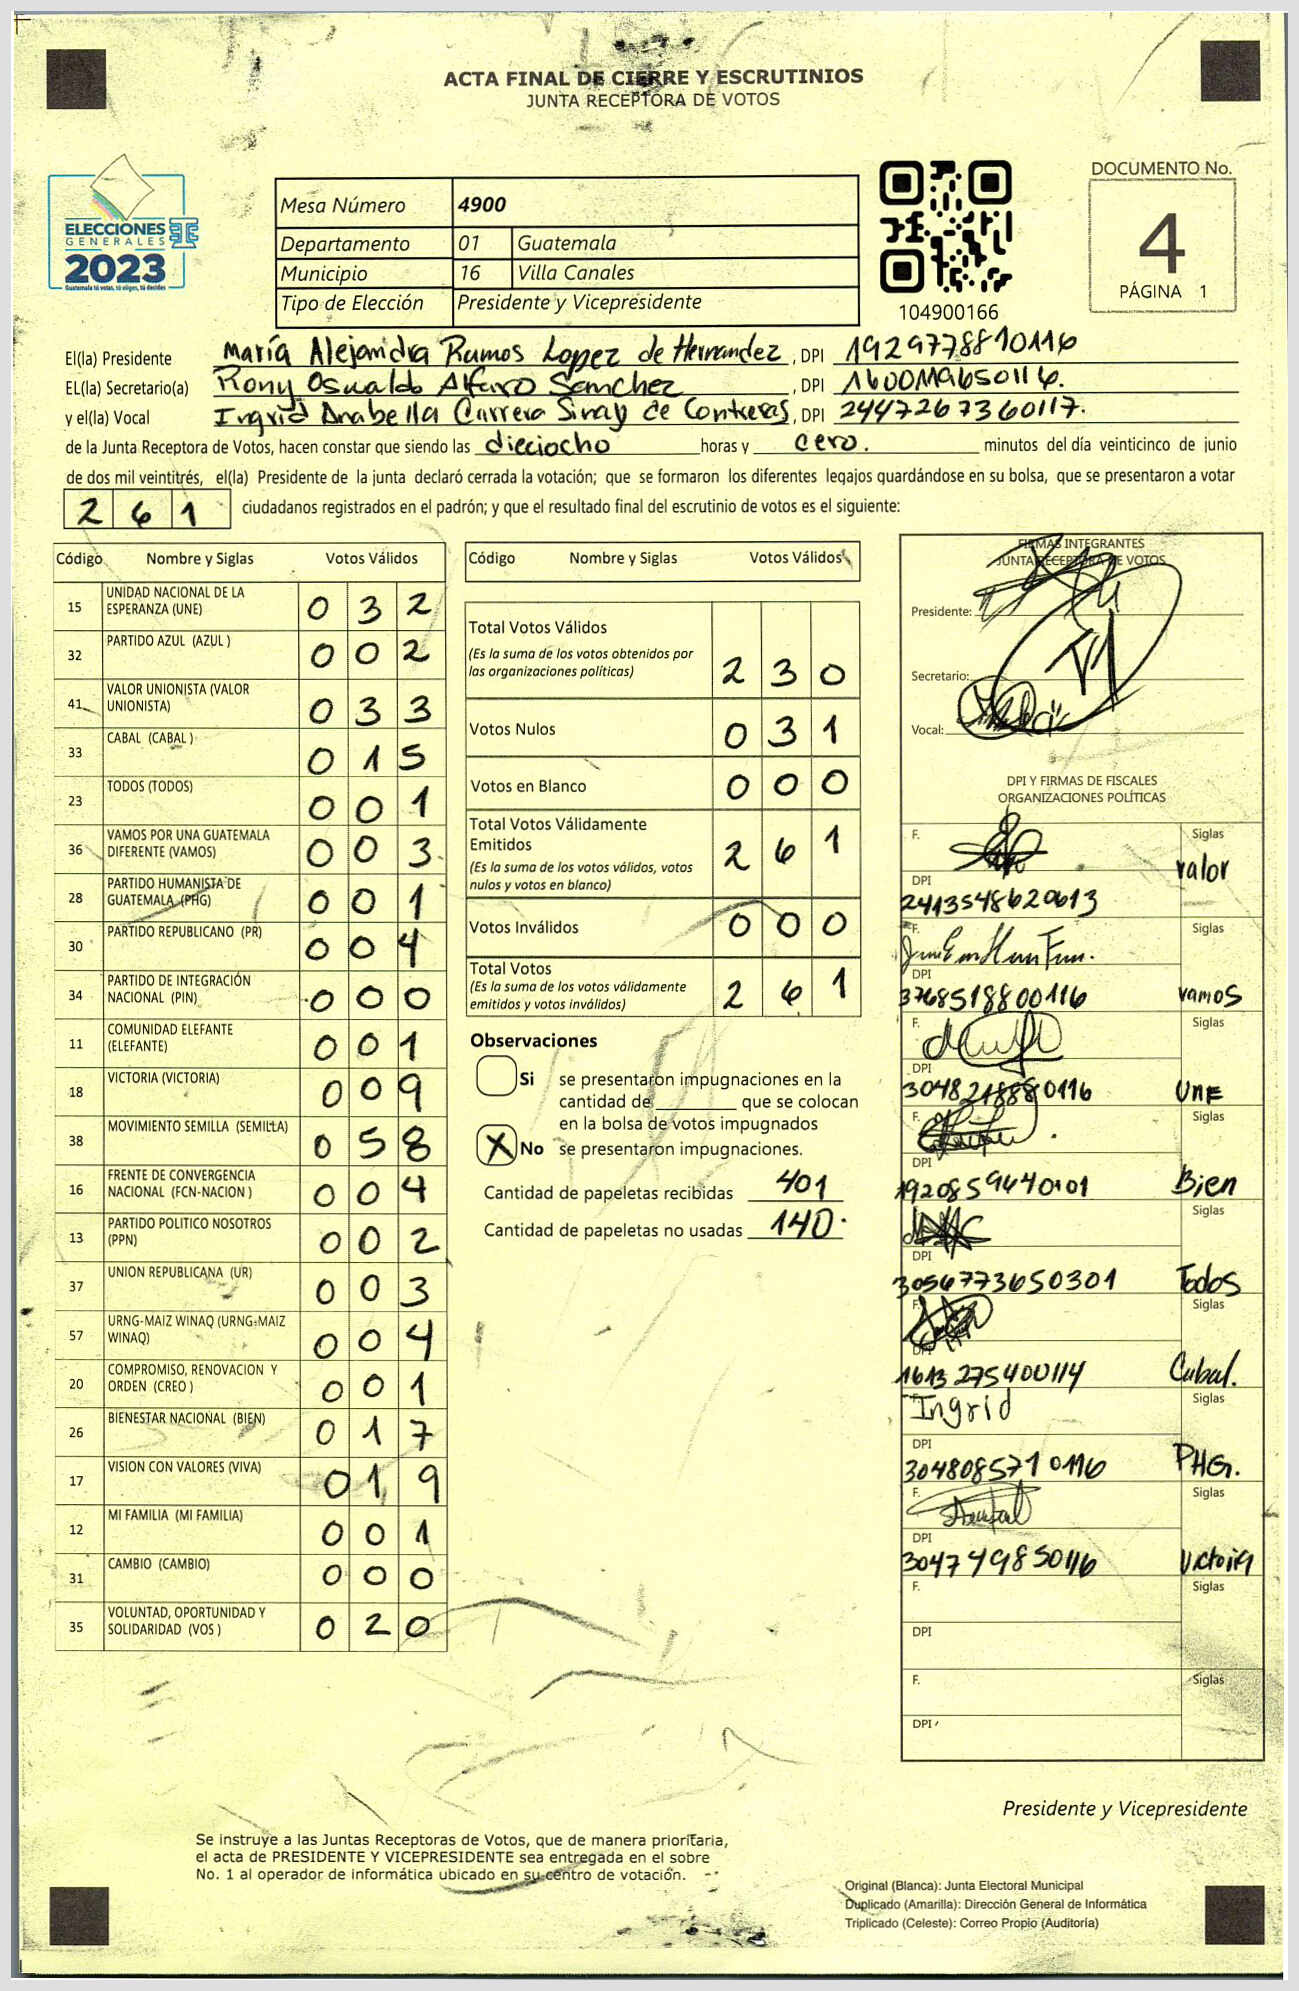 ACTA FINAL DE CIERRE Y ESCRUTINIOS
JUNTA RECEPTORA DE VOTOS
ELECCIONES
GENERALES
2023
Guatemala tú votas, tú eliges, tú decides
Mesa Número 4900
Departamento 01 Guatemala
Municipio 16 Villa Canales
Tipo de Elección Presidente y Vicepresidente
104900166
DOCUMENTO No.
4
PÁGINA 1
El(la) Presidente María Alejandra Ramos Lopez de Hernandez, DPI 1929778810116
EL(la) Secretario(a) Rony Oswaldo Alfaro Sanchez, DPI
y el(la) Vocal Ingrid Anabella Carrera Sinay de Contreras, DPI 2447267360117.
de la Junta Receptora de Votos, hacen constar que siendo las dieciocho horas y cero. minutos del día veinticinco de junio
de dos mil veintitrés, el(la) Presidente de la junta declaró cerrada la votación; que se formaron los diferentes legajos guardándose en su bolsa, que se presentaron a votar
261 ciudadanos registrados en el padrón; y que el resultado final del escrutinio de votos es el siguiente:
Código Nombre y Siglas Votos Válidos
15 UNIDAD NACIONAL DE LA ESPERANZA (UNE) 032
32 PARTIDO AZUL (AZUL ) 002
41 VALOR UNIONISTA (VALOR UNIONISTA) 033
33 CABAL (CABAL ) 015
23 TODOS (TODOS) 001
36 VAMOS POR UNA GUATEMALA DIFERENTE (VAMOS) 003
28 PARTIDO HUMANISTA DE GUATEMALA (PHG) 001
30 PARTIDO REPUBLICANO (PR) 004
34 PARTIDO DE INTEGRACIÓN NACIONAL (PIN) 000
11 COMUNIDAD ELEFANTE (ELEFANTE) 001
18 VICTORIA (VICTORIA) 009
38 MOVIMIENTO SEMILLA (SEMILLA) 058
16 FRENTE DE CONVERGENCIA NACIONAL (FCN-NACION ) 004
13 PARTIDO POLITICO NOSOTROS (PPN) 002
37 UNION REPUBLICANA (UR) 003
57 URNG-MAIZ WINAQ (URNG-MAIZ WINAQ) 004
20 COMPROMISO, RENOVACION Y ORDEN (CREO ) 001
26 BIENESTAR NACIONAL (BIEN) 017
17 VISION CON VALORES (VIVA) 019
12 MI FAMILIA (MI FAMILIA) 001
31 CAMBIO (CAMBIO) 000
35 VOLUNTAD, OPORTUNIDAD Y SOLIDARIDAD (VOS ) 020
Código Nombre y Siglas Votos Válidos
Total Votos Válidos
(Es la suma de los votos obtenidos por
las organizaciones políticas) 230
Votos Nulos 031
Votos en Blanco 000
Total Votos Válidamente
Emitidos 261
(Es la suma de los votos válidos, votos
nulos y votos en blanco)
Votos Inválidos 000
Total Votos
(Es la suma de los votos válidamente
emitidos y votos inválidos) 261
Observaciones
Si se presentaron impugnaciones en la
cantidad de ________ que se colocan
en la bolsa de votos impugnados
X No se presentaron impugnaciones.
Cantidad de papeletas recibidas 401
Cantidad de papeletas no usadas 140.
FIRMAS INTEGRANTES
JUNTA RECEPTORA DE VOTOS
Presidente:
Secretario:
Vocal:
DPI Y FIRMAS DE FISCALES
ORGANIZACIONES POLÍTICAS
F. Siglas
valor
DPI
2413548620613
F. Siglas
DPI
3768518800116 vamos
F. Siglas
DPI
3048218880116 UNE
F. Siglas
DPI
1920859440101 Bien
Siglas
DPI
3056773650301 Todos
F. Siglas
DPI
1613275400114 Cabal.
F. Siglas
Ingrid
DPI
3048085710116 PHG.
F. Siglas
DPI
3047749850116 Victoria
F. Siglas
DPI
F. Siglas
DPI
Presidente y Vicepresidente
Se instruye a las Juntas Receptoras de Votos, que de manera prioritaria,
el acta de PRESIDENTE Y VICEPRESIDENTE sea entregada en el sobre
No. 1 al operador de informática ubicado en su centro de votación.
Original (Blanca): Junta Electoral Municipal
Duplicado (Amarilla): Dirección General de Informática
Triplicado (Celeste): Correo Propio (Auditoría)